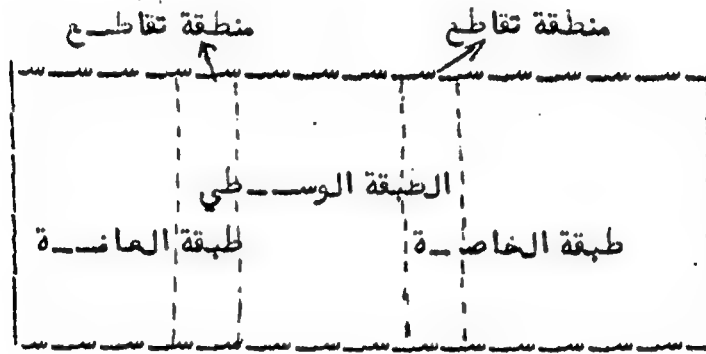 منطقة تقاطع منطقة تقاطـــع
الطبقة الوســـطي
طبقة الخاصـــة طبقة العامـــة